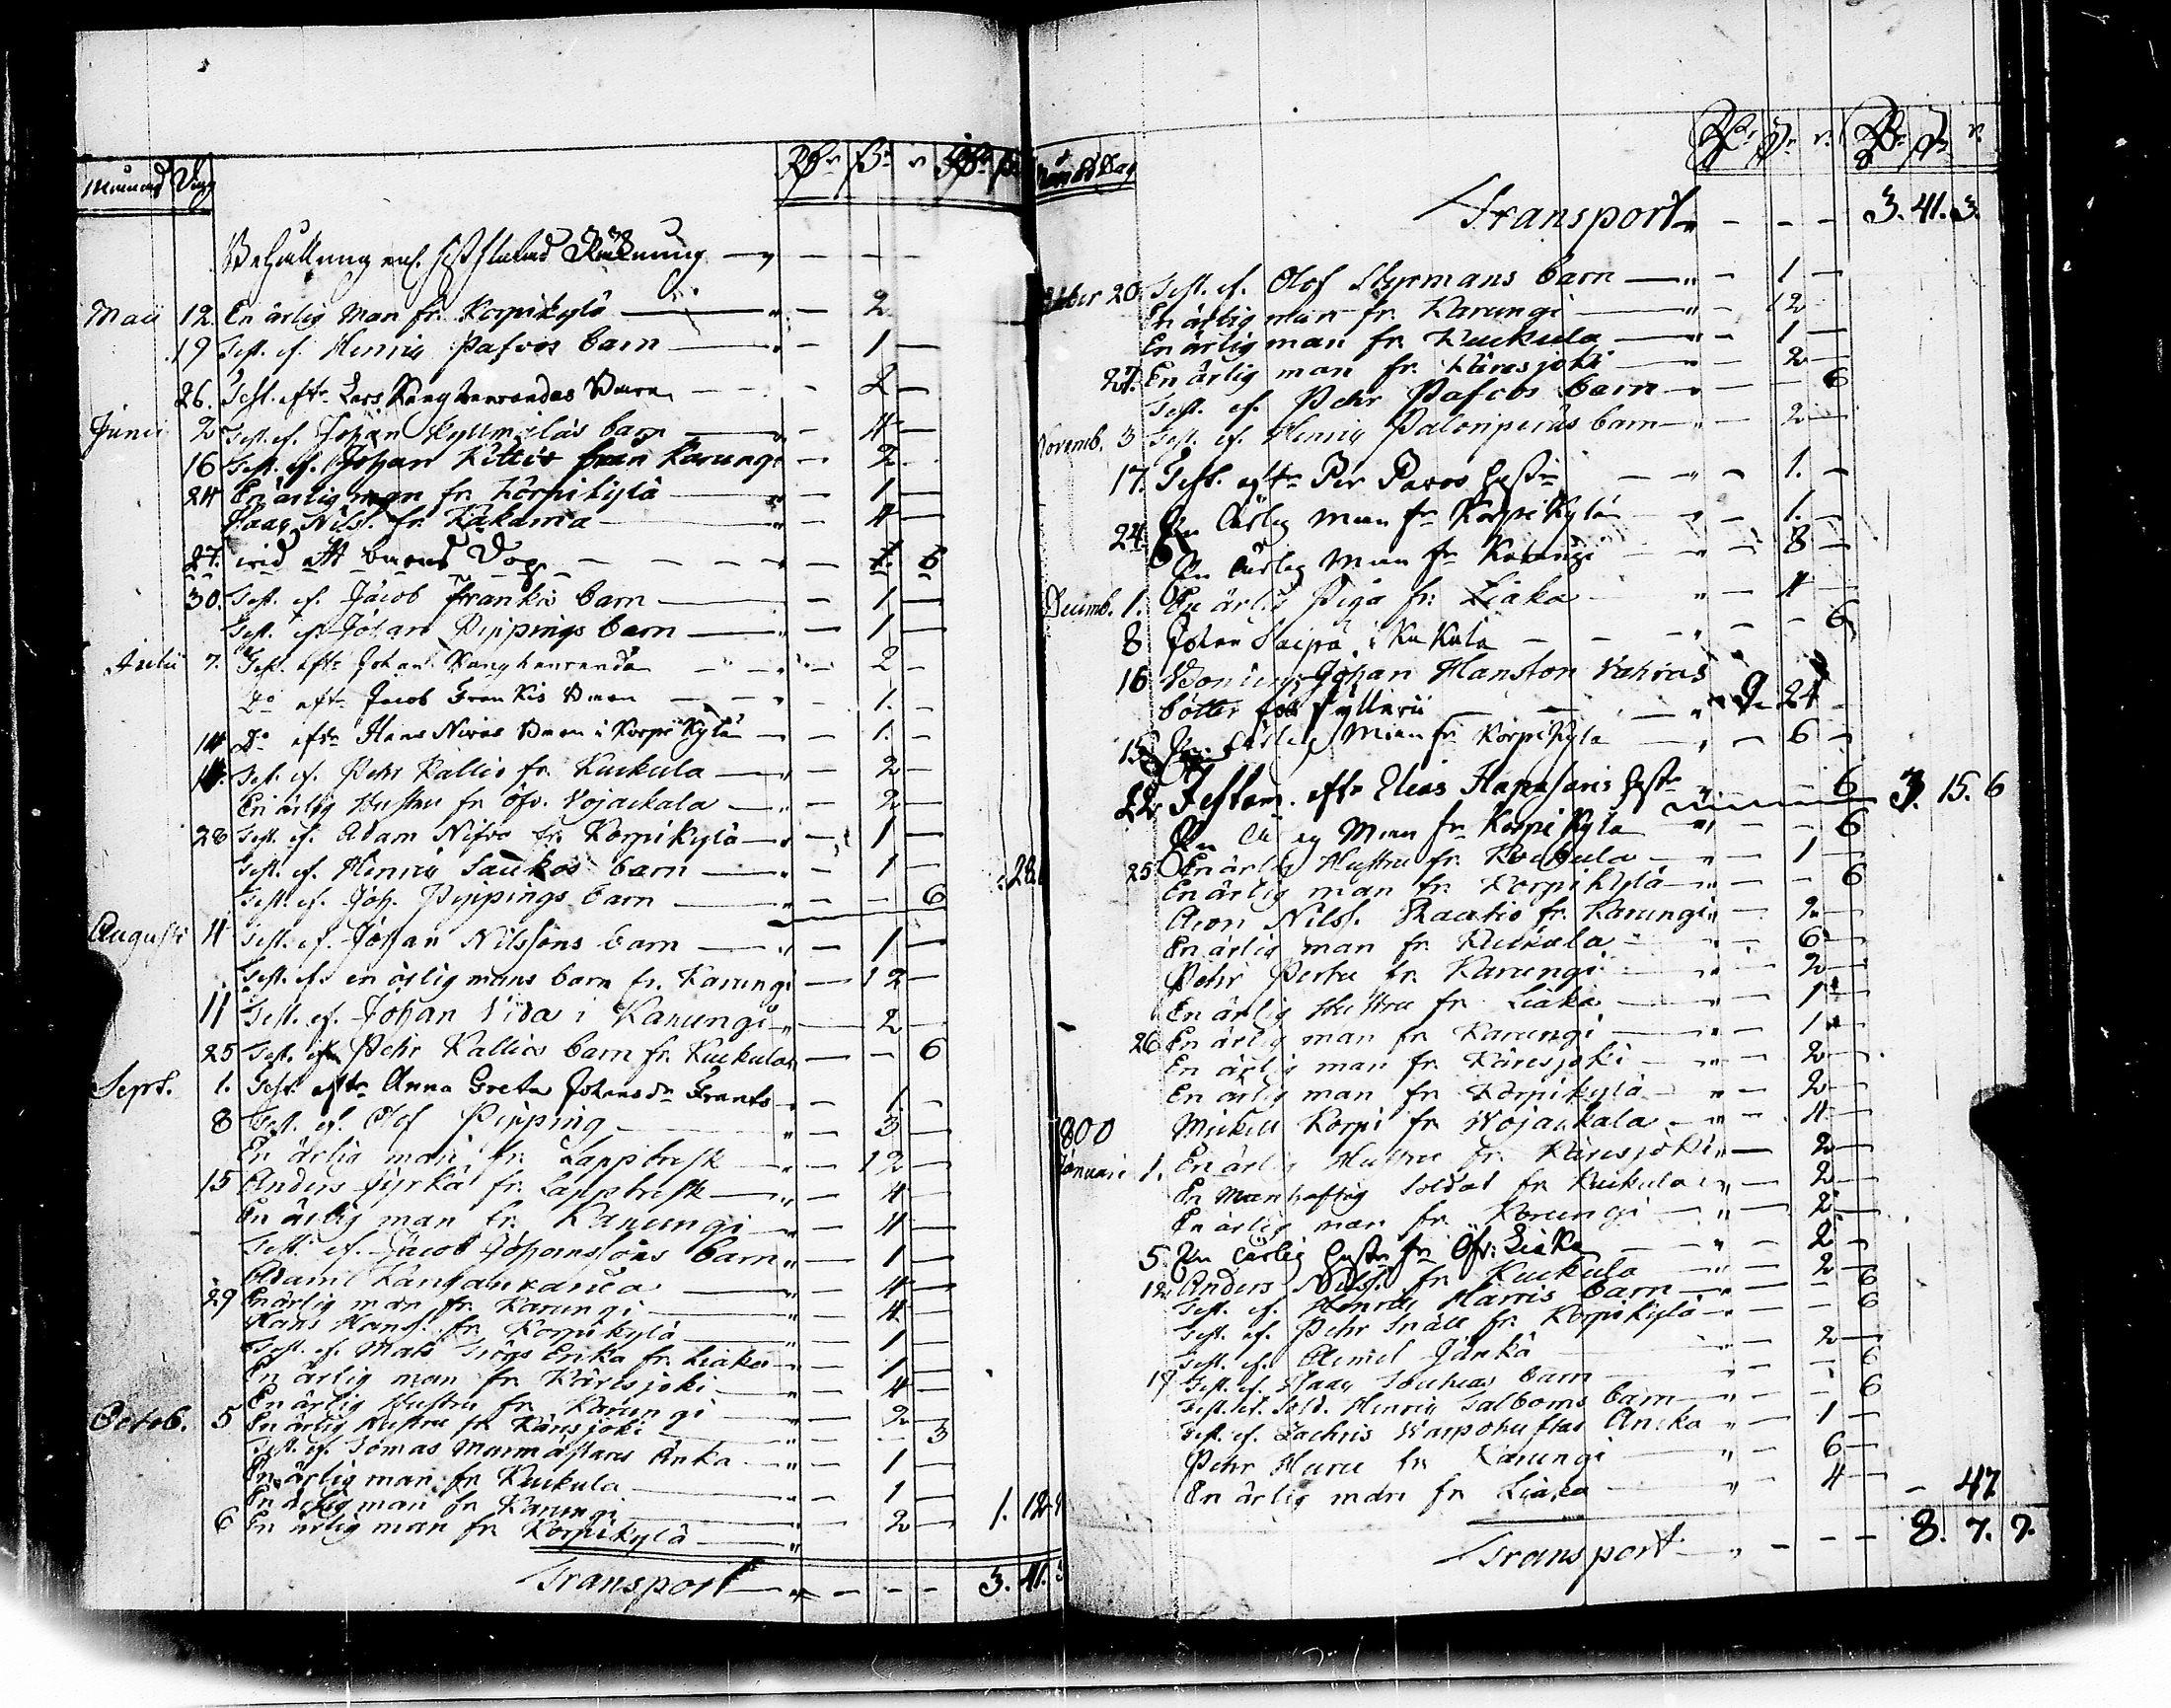 Månad Dag Rdr ß r Rdr ß
Behållning enl. sistslutad Räkning
Maii 12. En ärlig Man fr. Korpikylä 2
19 Test. ef. Henric Pafvos barn 1
26. Test. eftr Lars Kanghanrandas Barn 2
Junii 2 Test. ef. Johan Kyllmäläs barn 4
16 Test. ef. Johan Kittis från Karungi 2
24 En ärlig man fr. Korpikylä 1
Isaac Nilss. fr. Kakama 4
27. wid ett barns Dop 1. 6
30. Test. ef. Jacob Frankis barn 1
Test. ef. Johan Pippings barn 1
Julii 7. Test. eftr Johan Kanghanranda 2
Do eftr Jacob Frankis Barn 1.
14 Do eftr Hans Nivas Barn i Korpikylä 1.
14. Test. ef. Pehr Kallio fr. Kuckula 2
En ärlig Hustru fr. öfv. Wojackala 2
28 Test. ef. Adam Nifvo fr. Korpikylä 1
Test. ef. Henric Saukos barn 1 28.
Test. ef. Joh. Pippings barn 6
Augusti 4 Test. ef. Johan Nilssons barn 1
Test. ef. en ärlig mans barn fr. Karungi 12
11 Test. ef. Johan Vida i Karungi 2
25 Test. ef. Pehr Kallios barn fr. Kuckula 6
Sept. 1. Test. eftr Anna Greta Johansdr Frants 1
8 Test. ef. Olof Pipping 3
En ärlig man fr. Lapptresk 12
15 Anders Jyrkä fr. Lapptresk 4
En ärlig man fr. Karungi 4
Test. ef. Jacob Johanssons barn 1
Adam Kangahanranda 4
29 En ärlig man fr. Karungi 4
Hans Hanss. fr. Korpikylä 1
Test. ef. Mats Erika fr. Liaka 1
En ärlig man fr. Karesjoki 4
En ärlig Hustru fr. Karungi 2
Octob. 5 En ärlig Hustru fr. Karesjoki 3
Test. ef. Tomas Enka 1
En ärlig man fr. Kuckula 1
En ärlig man fr. Karungi 2 1. 12.
6 En ärlig man fr. Korpikylä
Transport 3. 41. 3
Månad Dag Rdr ß r. Rdr ß r.
Transport 3. 41. 3.
20. Test. ef. Olof Styrmans barn 1
En ärlig man fr. Karungi 12
En ärlig man fr. Kuckula 1
27. En ärlig man fr. Karesjoki 2
Test. ef. Pehr Pafvos barn 6
Novemb. 3 Test. ef. Henric Palonperäs barn 2
17. Test. eftr Per Pavos Hustru 1.
24 En ärlig Man fr Korpikylä 1.
En ärlig Man fr Karungi 8
Decemb. 1. En ärlig Piga fr. Liaka 4
8 Johan i Kukula 6
16 Bonden Johan Hansson Vahras
böter för fylleri 24
15 En ärlig Man fr Korpikyla 6
22 Testam. eftr Elias Hapasaris Hustr 6 3. 15. 6
En ärlig Man fr Korpikyla 6
25 En ärlig Hustru fr. Kuckula 1
En ärlig man fr. Korpikylä 6
Aron Nilss. Rautio fr. Karungi 2
En ärlig man fr. Kuckula 6
Pehr fr. Karungi 2
En ärlig Hustru fr. Liaka 1
26 En ärlig man fr. Karungi 1
En ärlig man fr. Karesjoki 2
En ärlig man fr. Korpikylä 2
1800 Mickel Korpi fr. Wojackala 4
Januari 1. En ärlig Hustru fr. Karesjoki 2
En Manhaftig Soldat fr. Kuckula 2
En ärlig man fr. Karungi 2
5 En ärlig Hustr fr. Öfr: Liaka 2
12 Anders Nilss. fr. Kuckula 2
Test. ef. Henric Harris barn 6
Test. ef. Pehr Snäll fr. Korpikylä 6
Test. ef. Jänkä 2
17 Test. ef. Isaac barn 6
Test. ef. Sold. Henric Salboms barn 6
Test. ef. Zachris Encka 1
Pehr Huru fr. Karungi 6
En ärlig man fr. Liaka 4 47
Transport 8. 7. 7.